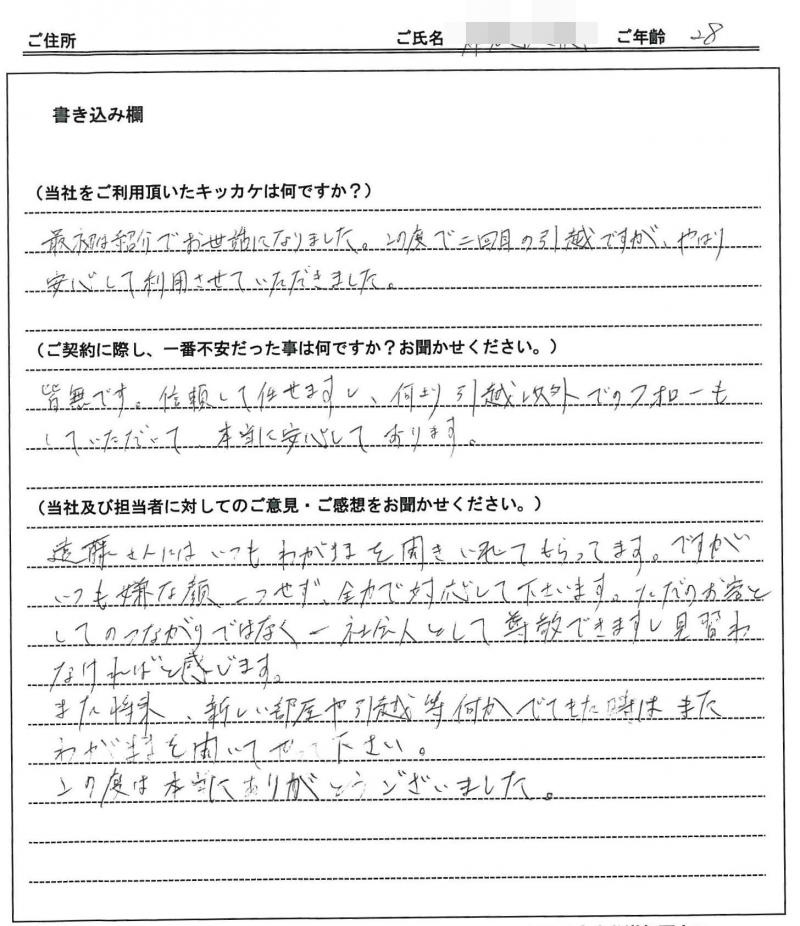 ご住所 ご氏名 ご年齢 28
書き込み欄
(当社をご利用頂いたキッカケは何ですか?)
最初は紹介でお世話になりました。この度で二回目の引越ですが、やはり
安心して利用させていただきました。
(ご契約に際し、一番不安だった事は何ですか?お聞かせください。)
皆無です。信頼して任せますし、何より引越以外でのフォローも
していただいて、本当に安心しております。
(当社及び担当者に対してのご意見・ご感想をお聞かせください。)
遠藤さんにはいつもわがままを聞き入れてもらってます。ですが
いつも嫌な顔一つせず、全力で対応して下さいます。ただのお客と
してのつながりではなく一社会人として尊敬できますし見習わ
なければと感じます。
また将来、新しい部屋や引越等何かでてきた時はまた
わがままを聞いてやって下さい。
この度は本当にありがとうございました。